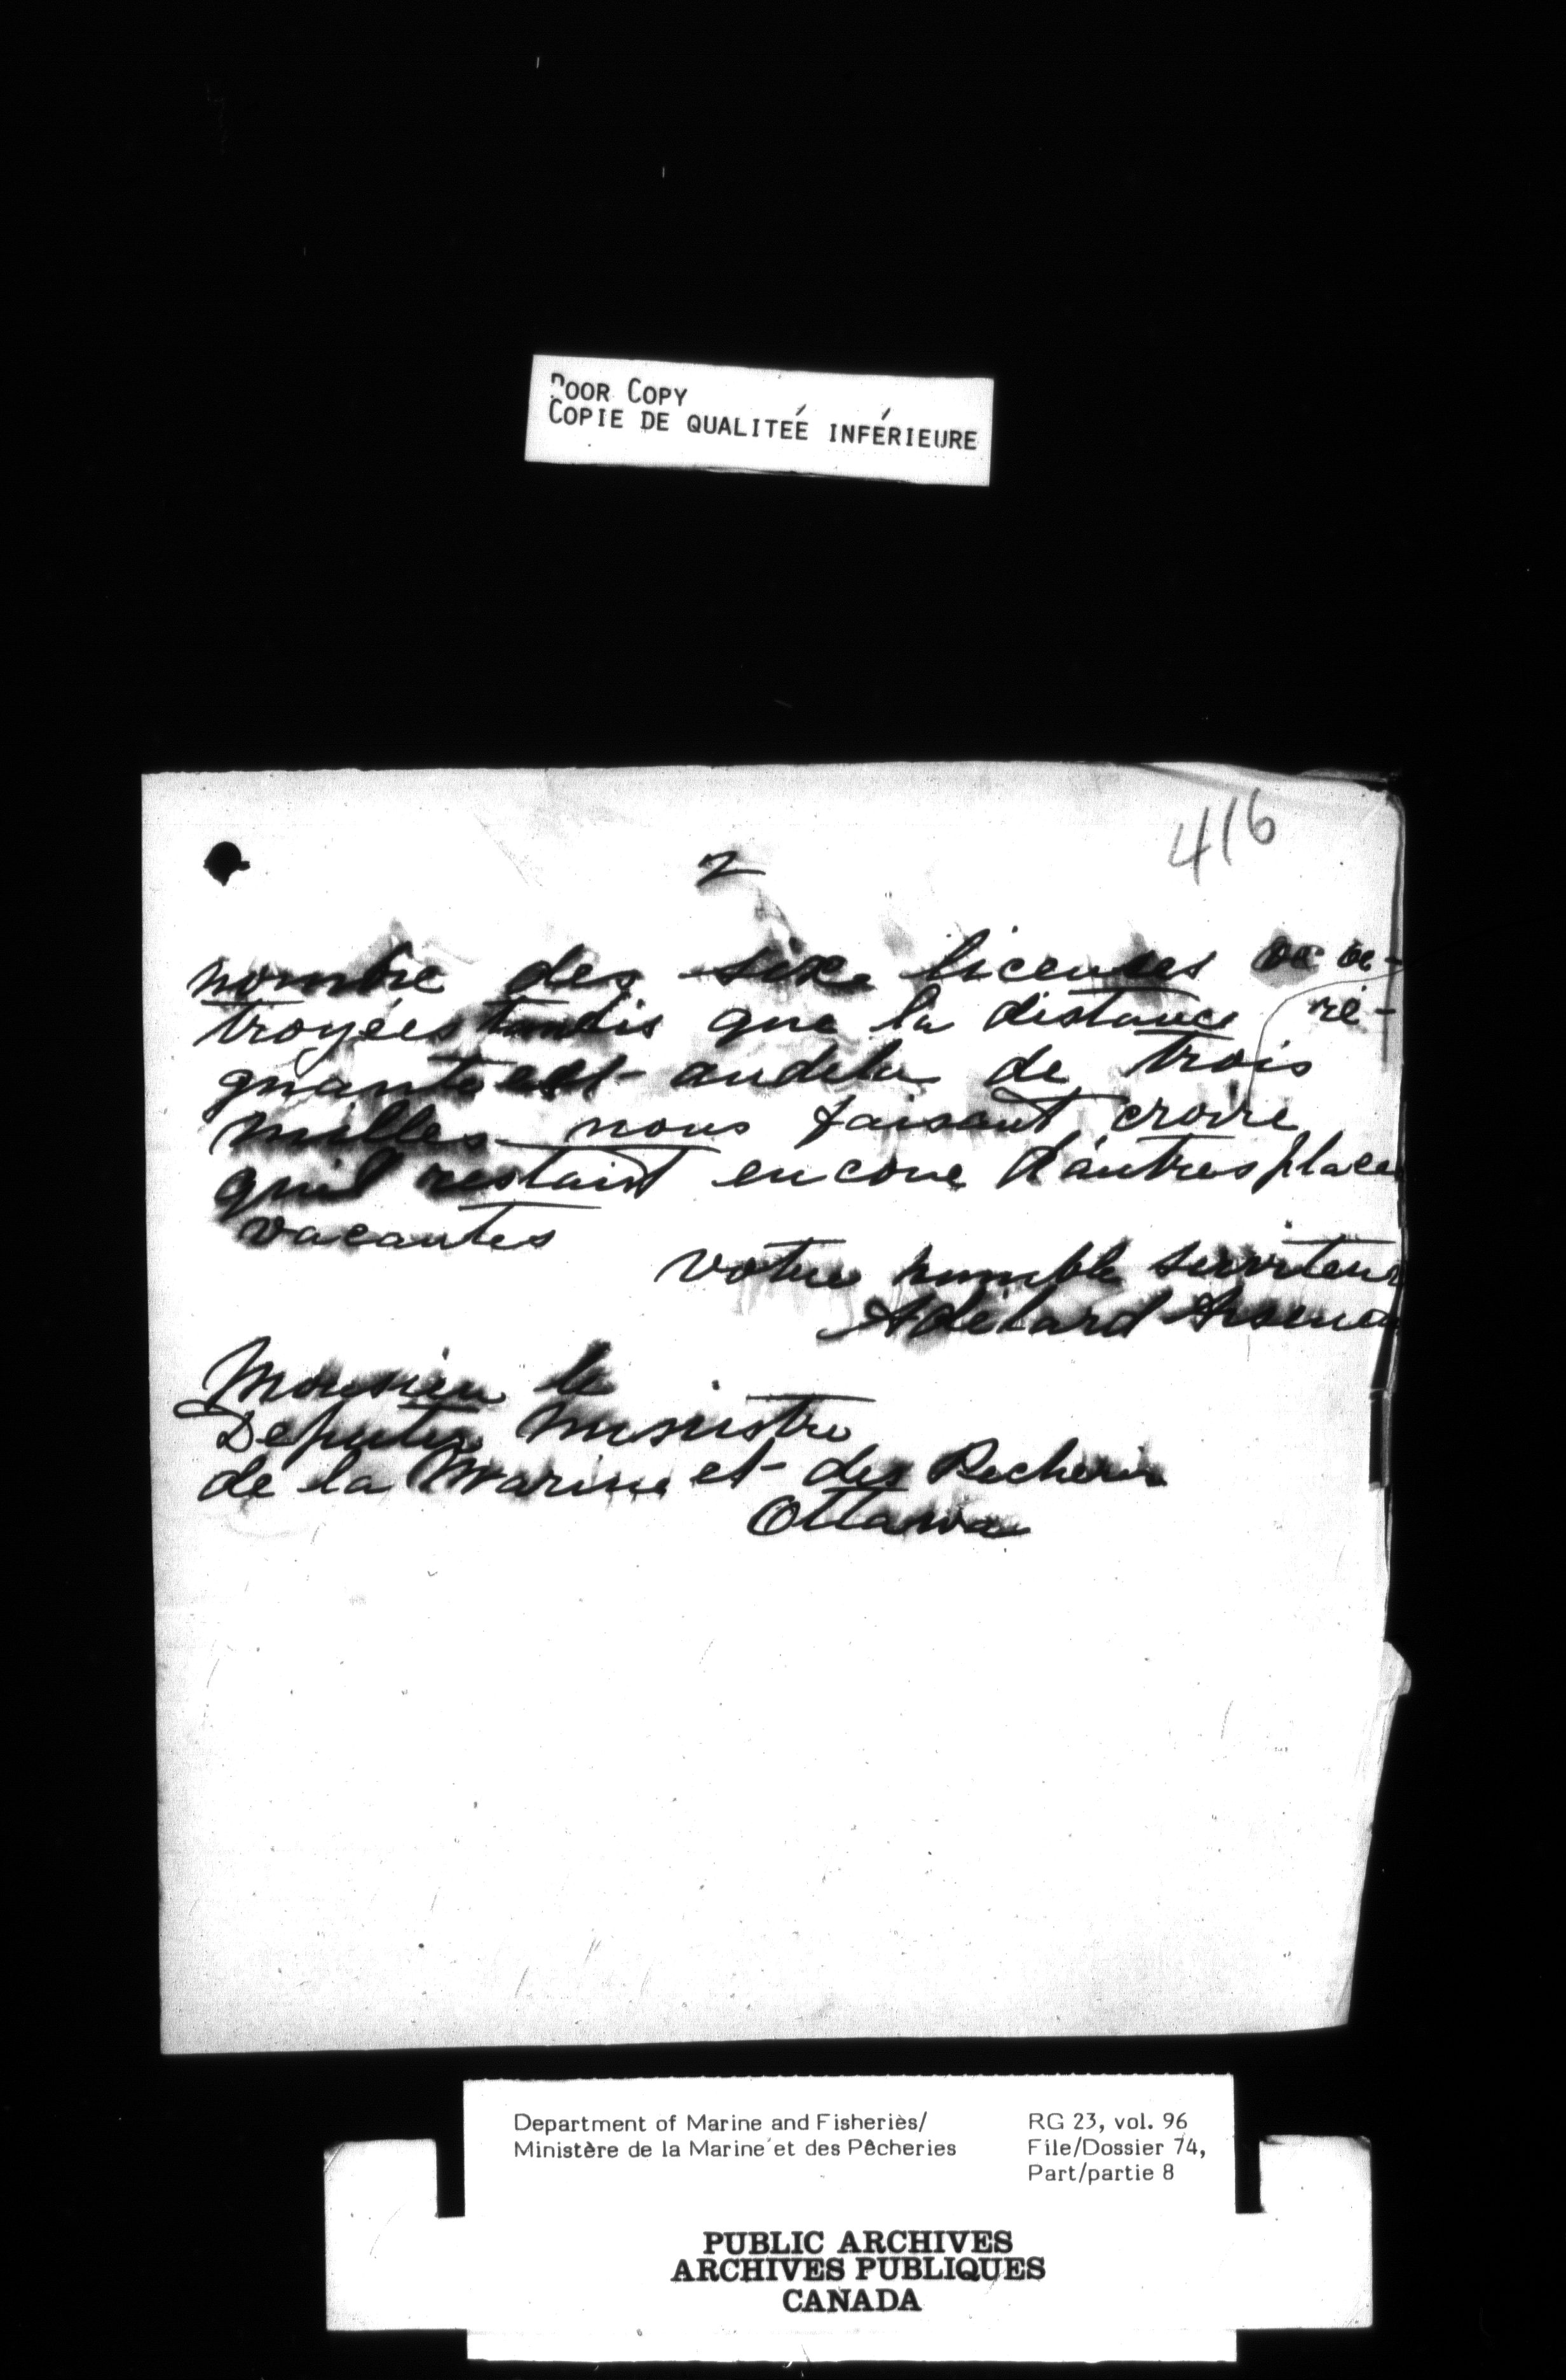 POOR COPY
COPIE DE QUALITEÉ INFÉRIEURE
416
2
nombre des six licenses oc oc-
troyées tandis que la distance ré-
gnante est audela de trois
milles nous faisant croire
quil restait encore d'autres places
vacantes
votre humble serviteur
Adélard Arsenea
Monsieur le
Deputer ministre
de la Marine et des Pecheries
Ottawa
Department of Marine and Fisheries/
Ministère de la Marine et des Pêcheries
RG 23, vol. 96
File/Dossier 74,
Part/partie 8
PUBLIC ARCHIVES
ARCHIVES PUBLIQUES
CANADA